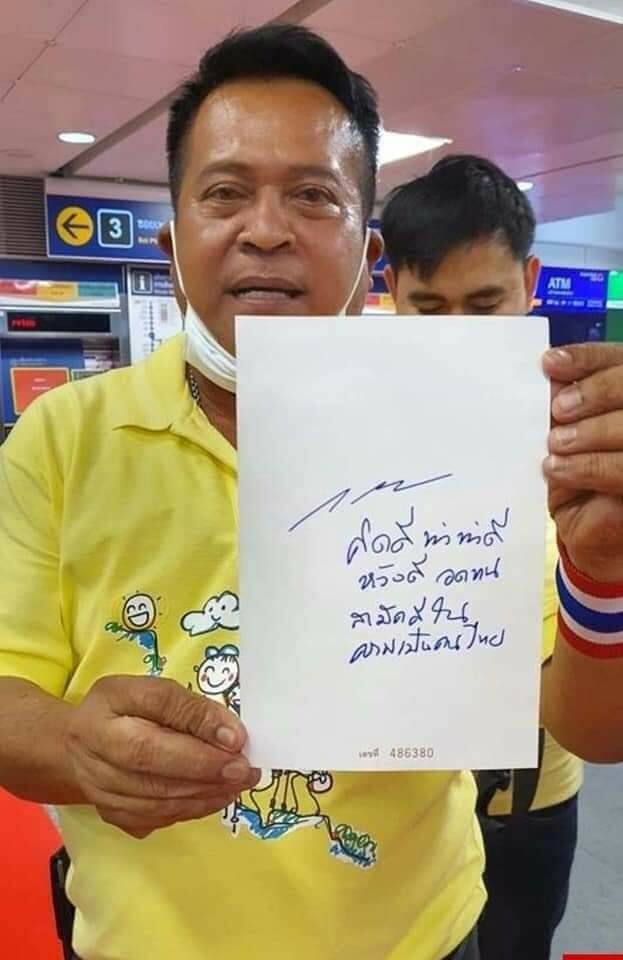 3
ATM
คิดดี ทำ ทำดี
หวังดี อดทน
สามัคคี ใน
ความเป็นคนไทย
เลขที่ 486380